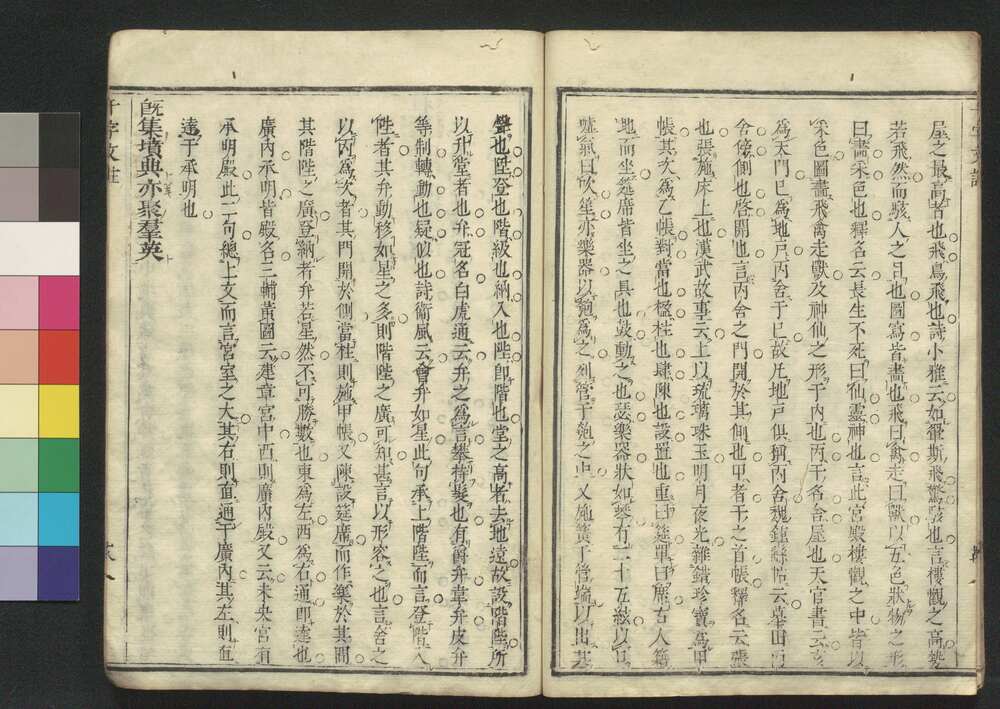 屋之最高者也飛鳥飛也詩小雅云如翬斯飛驚駭也言樓觀之高勢
若飛然而駭人之目也圖寫皆畫也飛曰禽走曰獸以五色狀物之形
曰畫采色也釋名云長生不死曰仙靈神也言此宮殿樓觀之中皆以
采色圖畫飛禽走獸及神仙之形于內也丙干名舍屋也天官書云
為天門巳為地戶丙舍于巳故
舍傍側也啓開也言丙舍之門開於其側也甲者干之首帳釋名云張
也張施床上也漢武故事云上以琉璃珠玉明月夜光雜錯珍寶為甲
帳其次為乙帳對當也楹柱也肆陳也設置也重曰筵單曰席古人籍
地而坐筵席皆坐之具也鼓動之也瑟樂器狀如琴有二十五絃以
噓氣曰吹笙亦樂器以匏為之列管于匏之中又施簧于管端以出其
聲也陞登也階級也納入也陛即階也堂之高者去地遠故設階陛所
以升堂者也弁冠名白虎通云弁之為言攀持髮也有爵弁韋弁皮弁
等制轉動也疑似也詩衞風云會弁如星此句承上階陛而言登階入
陛者其弁動移如星之多則階陛之廣可知甚言以形容之也言舍之
以丙為次者其門開於側當柱則施甲帳又陳設筵席而作樂於其間
其階陛之廣登納者弁若星然不可勝數也東為左西為右通即達也
廣內承明皆殿名三輔黃圖云建章宮中西則廣內殿又云未央宮有
承明殿此二句總上文而言宮室之大其右則直通于廣內其左則直
達于承明也
旣集墳典亦聚羣英
千字文註